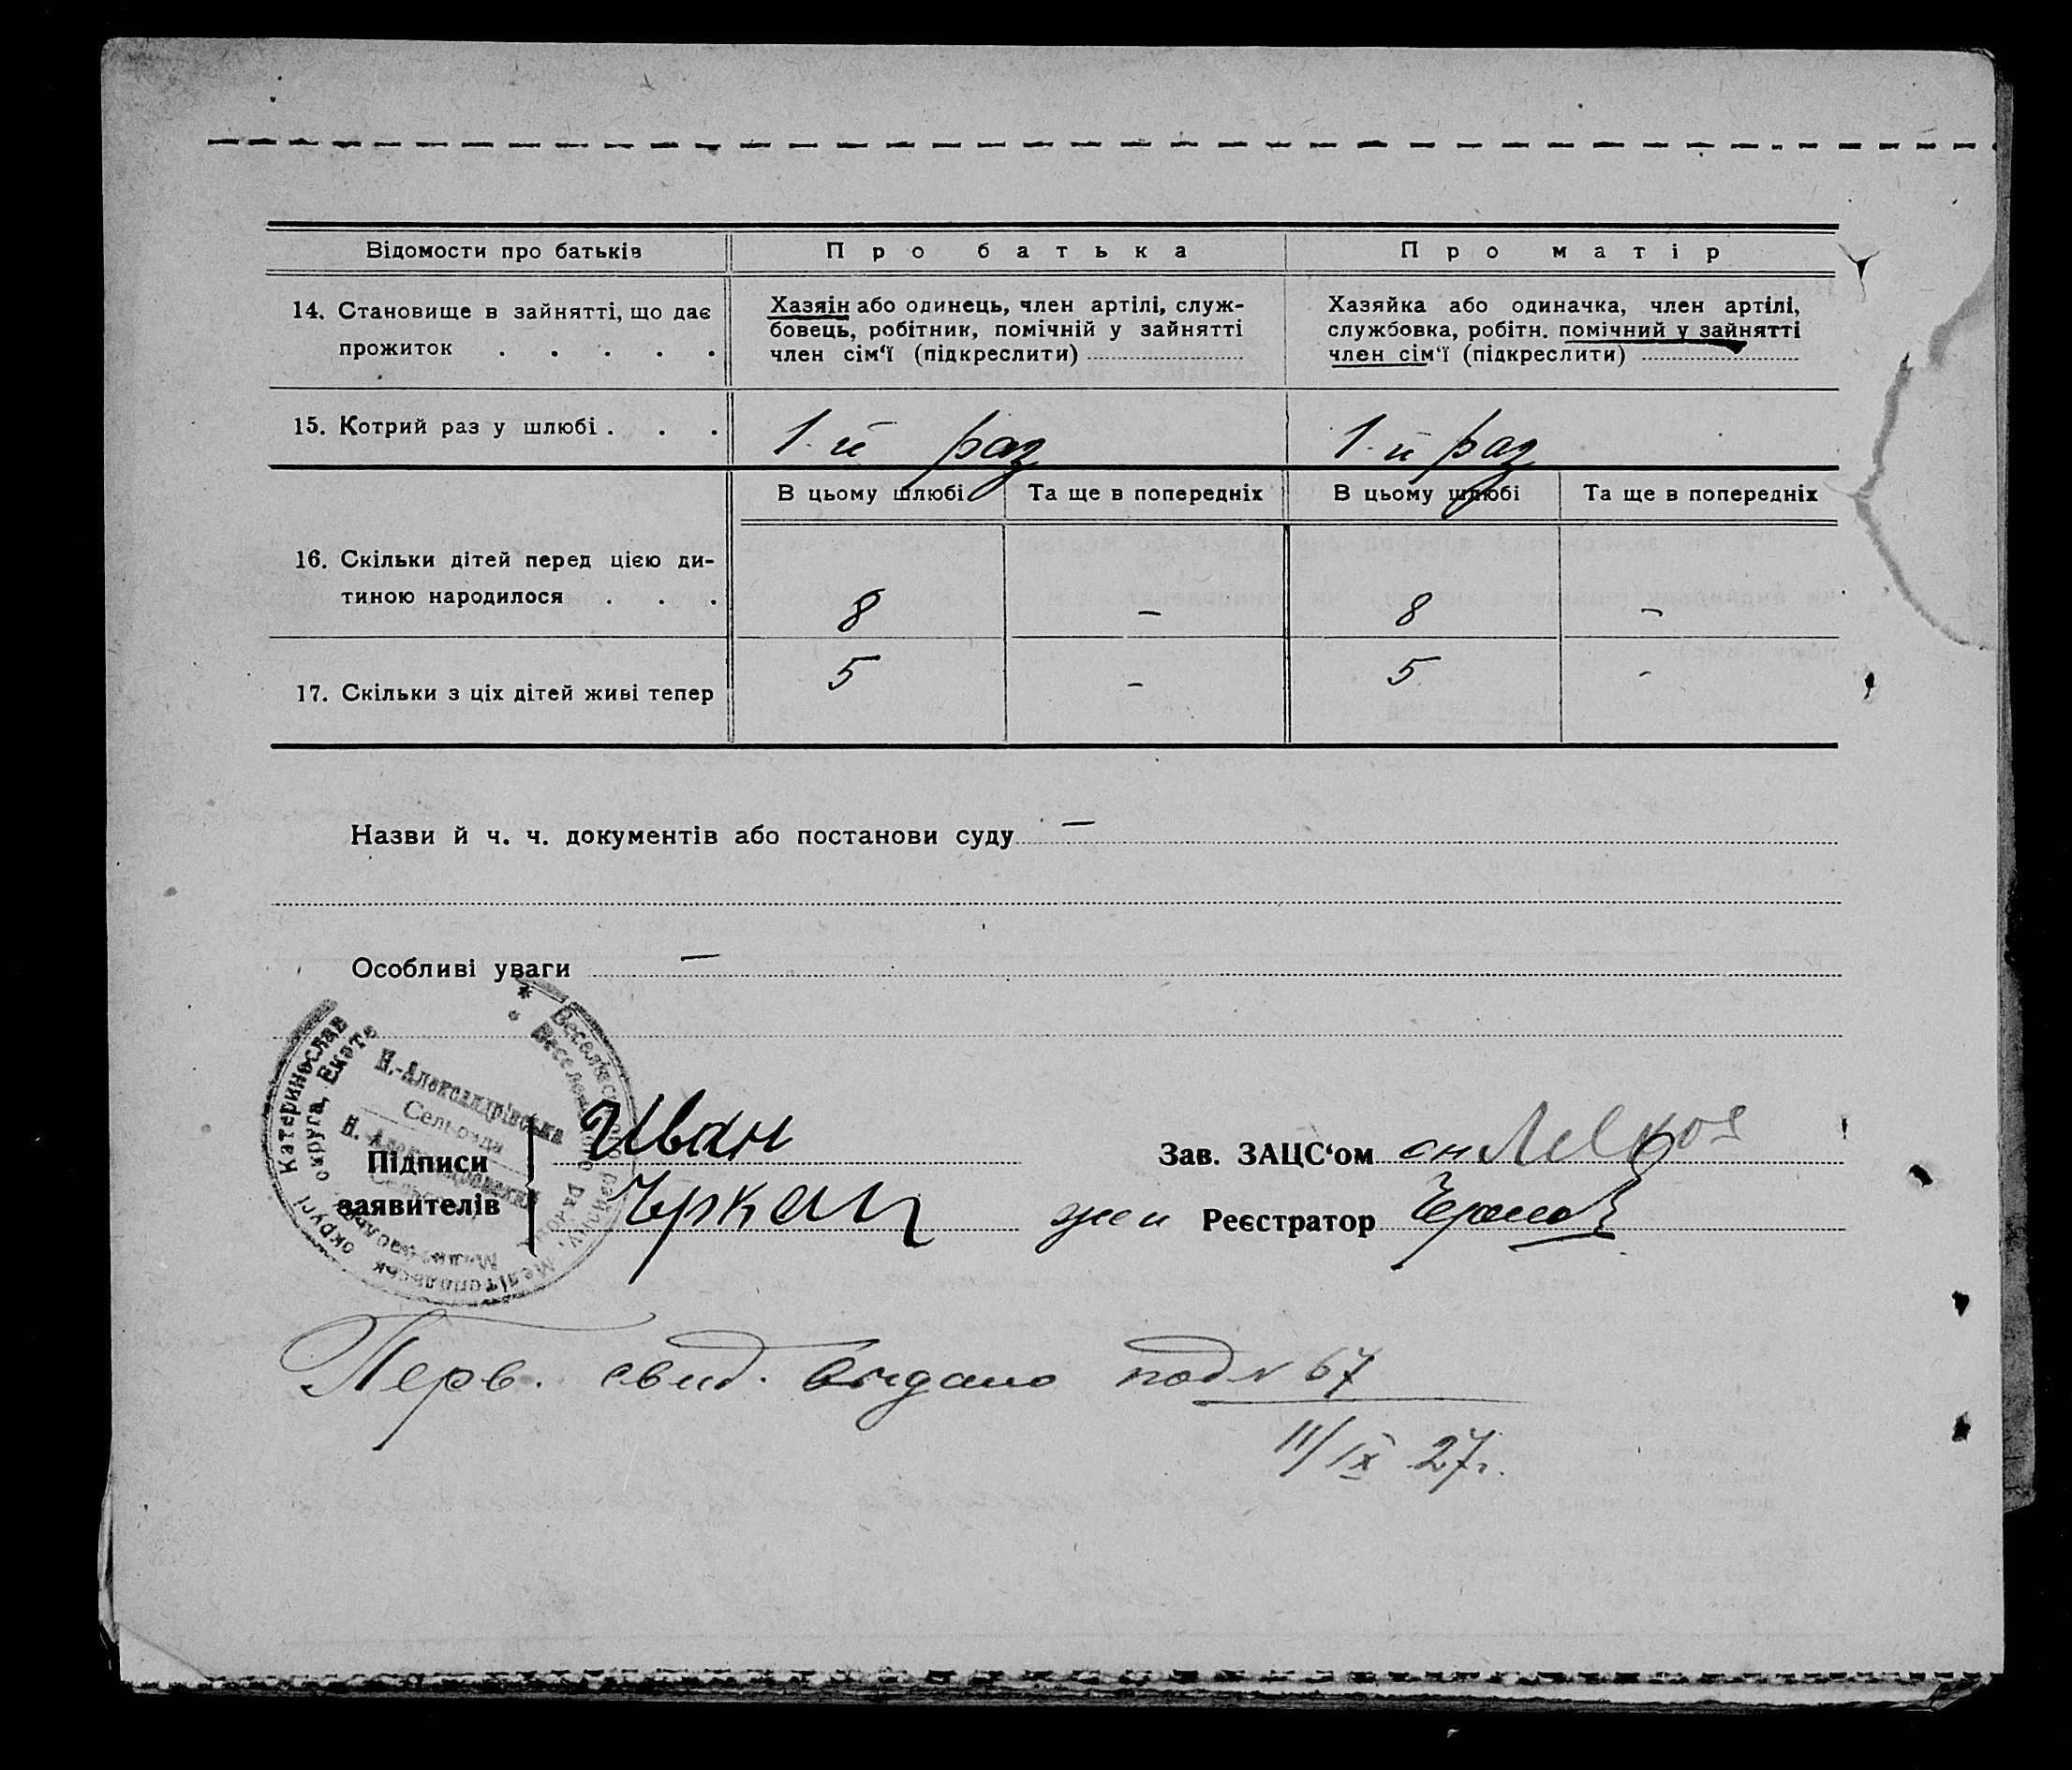 Відомости про батьків
Про батька
Про матір
14. Становище в зайнятті, що дає
прожиток . . . . .
Хазяїн або одинець, член артілі, служ-
бовець, робітник, помічній у зайнятті
член сім'ї (підкреслити)
Хазяйка або одиначка, член артілі,
службовка, робітн. помічний у зайнятті
член сім'ї (підкреслити)
15. Котрий раз у шлюбі . . .
1-й раз
1-й раз
В цьому шлюбі
Та ще в попередніх
В цьому шлюбі
Та ще в попередніх
16. Скільки дітей перед цією ди-
тиною народилося . . .
8
–
8
–
17. Скільки з ціх дітей живі тепер
5
–
5
-
Назви й ч. ч. документів або постанови суду –
Особливі уваги –
Н.-Александрівська
Сельрада
Катеринослав
округа, Екате
округі
Мелітопольськ
Підписи
заявителів
Иван
Зав. ЗАЦС'ом
Реєстратор
Перв. свид. выдано под № 67
11/IX 27г.